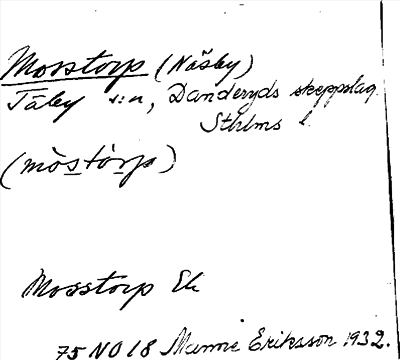 Mosstorp (Näsby)
Täby s:n, Danderyds skeppslag
Sthlms l.
(mòstórp)
Mosstorp Ek
75 NO 18 Manne Eriksson 1932.